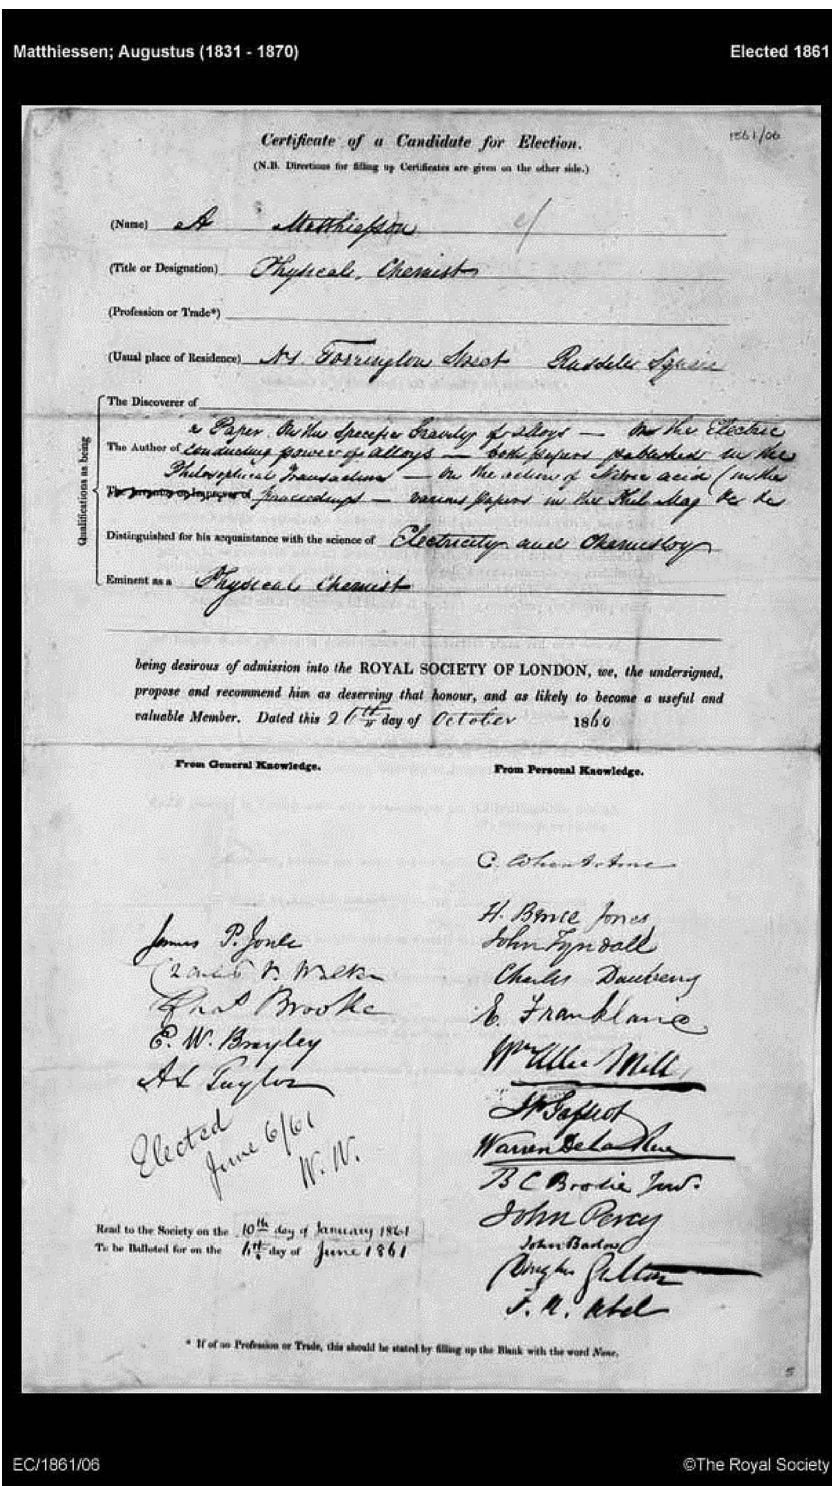 Matthiessen; Augustus (1831 - 1870) Elected 1861
1861/06
Certificate of a Candidate for Election.
(N.B. Directions for filling up Certificates are given on the other side.)
(Name) A Matthiessen
(Title or Designation) Physical Chemist
(Profession or Trade*)
(Usual place of Residence) Torrington Street Russell Square
The Discoverer of
a Paper On the Specific Gravity of alloys — On the Electric
The Author of conducting power of alloys — both papers published in the
Philosophical Transactions — On the action of Nitric acid (in the
Proceedings — various papers in the Phil. Mag &c &c
Qualifications as being
Distinguished for his acquaintance with the science of Electricity and Chemistry
Eminent as a Physical Chemist
being desirous of admission into the ROYAL SOCIETY OF LONDON, we, the undersigned,
propose and recommend him as deserving that honour, and as likely to become a useful and
valuable Member. Dated this 26th day of October 1860
From General Knowledge. From Personal Knowledge.
C. Wheatstone
H. Bence Jones
James P. Joule
John Tyndall
Charles V. Walker
Charles Daubeny
Chas Brooke
E. Frankland
E. W. Brayley
Wm Allen Miller
A S Taylor
J P Gassiot
Elected
June 6/61
W. W.
Warren De la Rue
B C Brodie Junr.
John Percy
John Barlow
Douglas Galton
F. A. Abel
Read to the Society on the 10th day of January 1861
To be Balloted for on the 6th day of June 1861
* If of no Profession or Trade, this should be stated by filling up the Blank with the word None.
5
EC/1861/06 ©The Royal Society